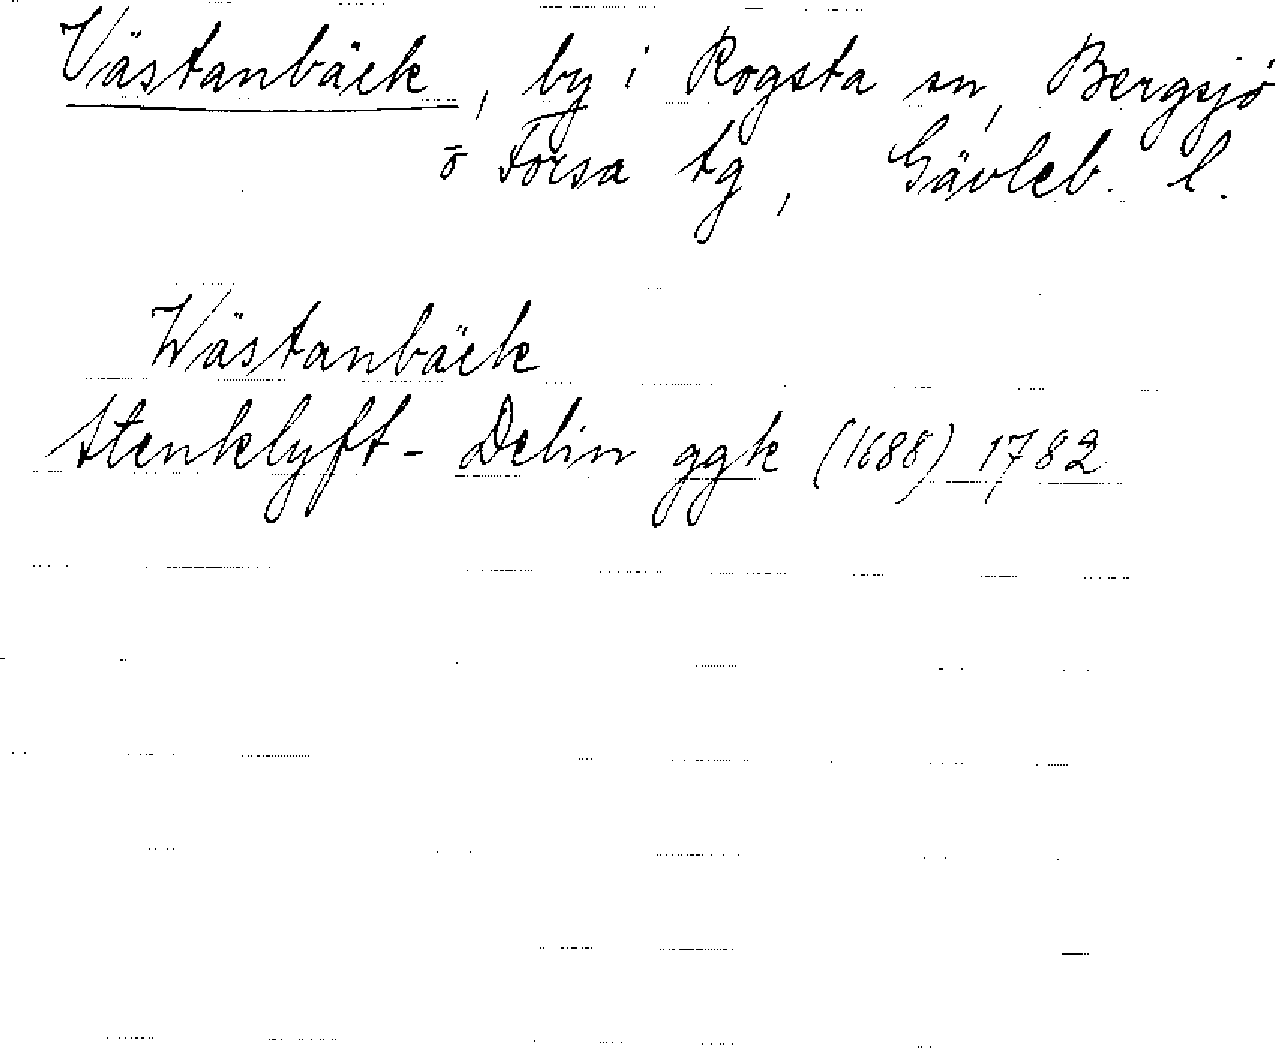 Västanbäck, by i Rogsta sn, Bergsjö
o Forsa tg, Gävleb. l.
Wästanbäck
Stenklyft- Delin ggk (1688) 1782